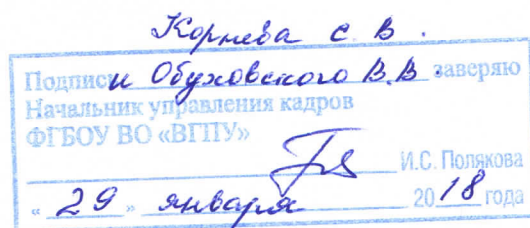 Корнева С. В.
Подписи Обуховского В.В. заверяю
Начальник управления кадров
ФГБОУ ВО «ВГПУ»
И.С. Полякова
« 29 » января 2018 года